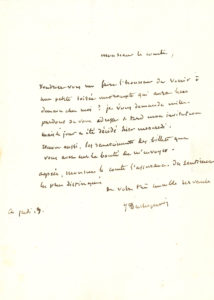 Monsieur le comte,
Voudrez vous me faire l'honneur de venir à
une petite soirée qui aura lieu
demain chez moi ? je vous demande mille
pardons de vous adresser si tard mon invitation
mais le jour a été décidé hier mercredi.
les billets que
vous avez eu la bonté de m'envoyer.
agréez, monsieur le comte l'assurance des sentiments
les plus distingués
De votre très humble servante
ce jeudi 9.